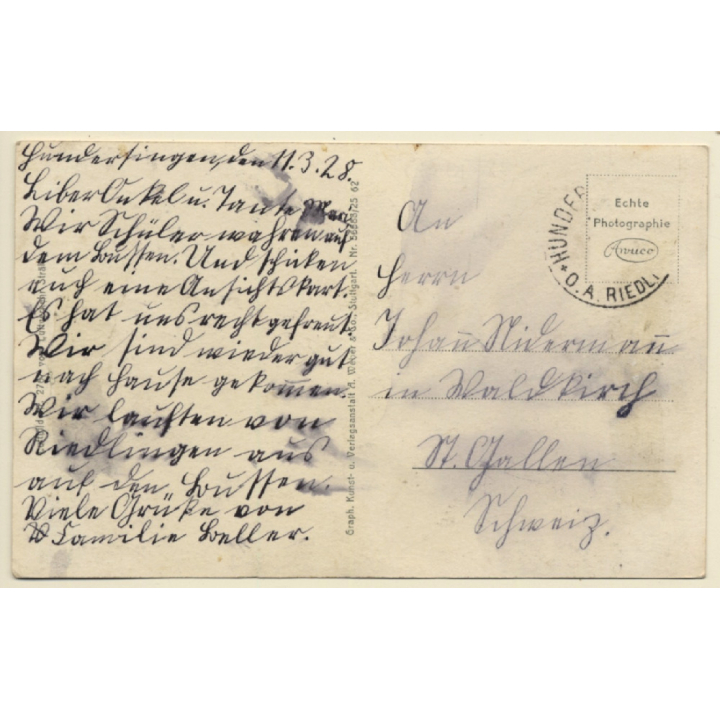 Hundersingen, den 11.3.28.
Liber Onkel u. Tante
Wir Schüler wahren auf
dem Bussen. Und schicken
euch eine Ansichtskart.
Es hat uns recht gefreut.
Wir sind wieder gut
nach Hause gekommen.
Wir lauften von
Riedlingen aus
auf den Bussen.
Viele Grüße von
Familie Beller.
Graph. Kunst- u. Verlagsanstalt Stuttgart. Nr. 25 62
An
Herrn
Johann Nidermann
in Waldkirch
St. Gallen
Schweiz.
HUNDER
O.A. RIEDL
Echte
Photographie
Awuco